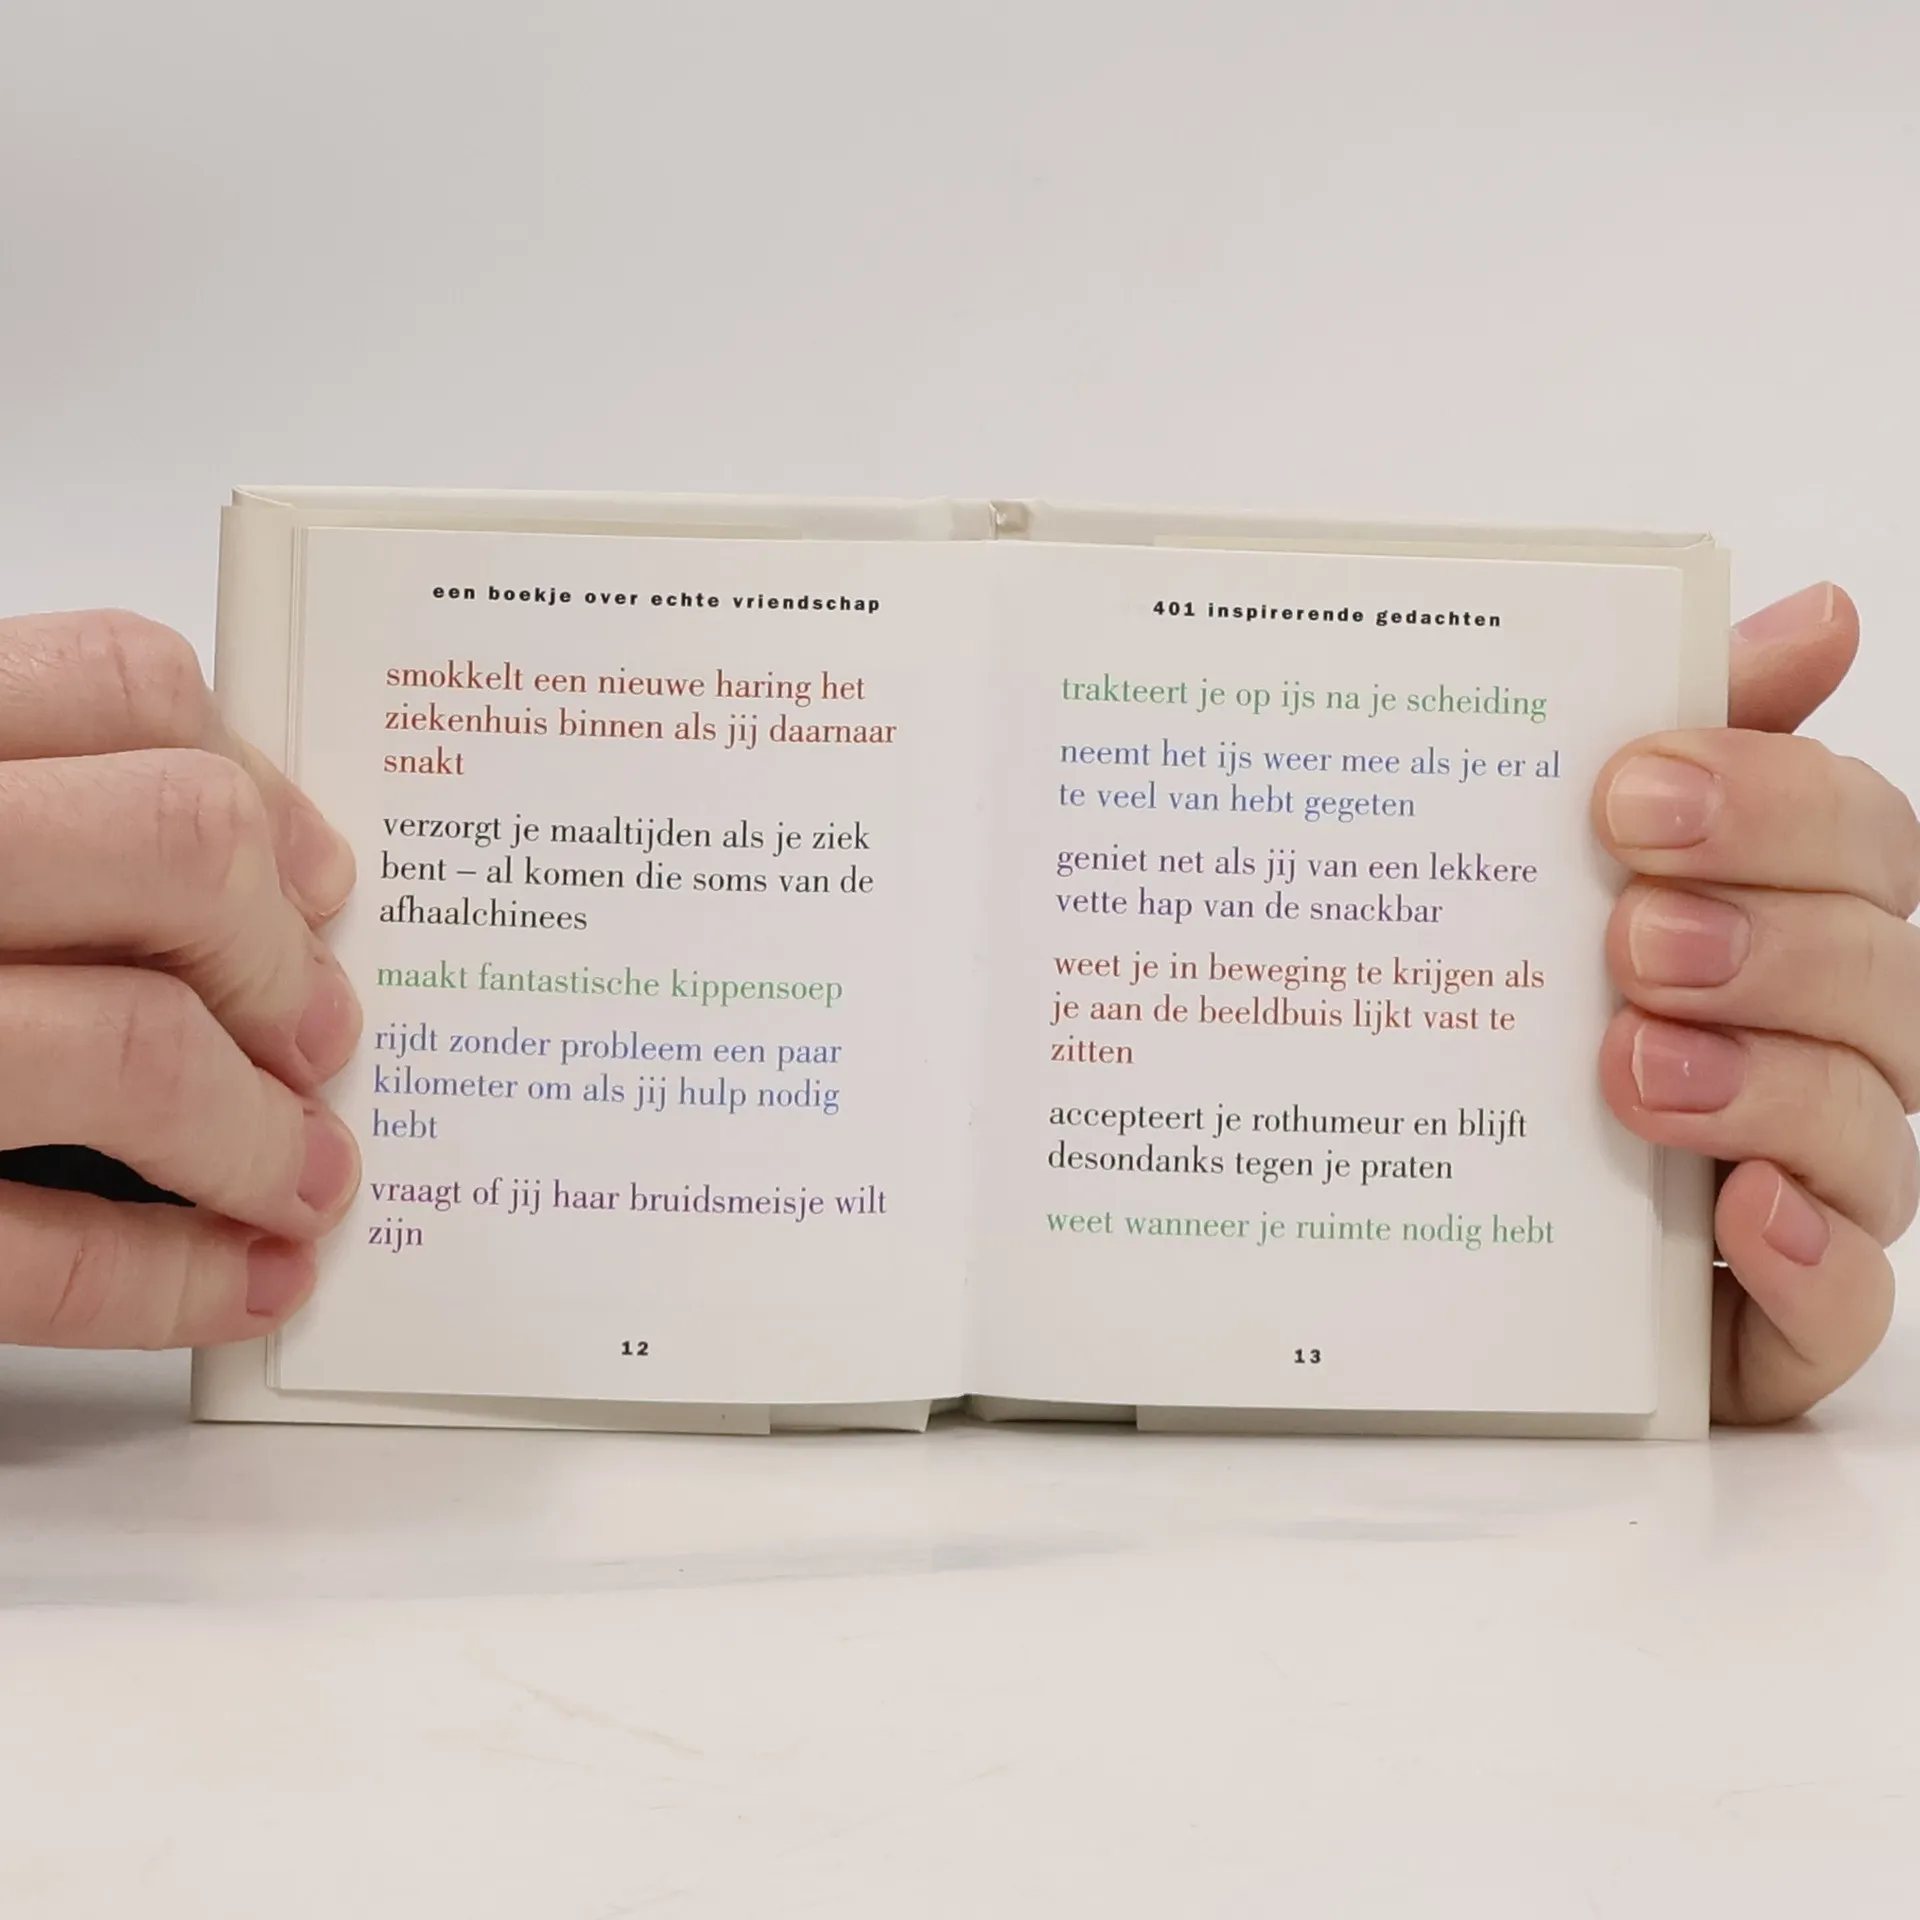 een boekje over echte vriendschap
smokkelt een nieuwe haring het
ziekenhuis binnen als jij daarnaar
snakt
verzorgt je maaltijden als je ziek
bent – al komen die soms van de
afhaalchinees
maakt fantastische kippensoep
rijdt zonder probleem een paar
kilometer om als jij hulp nodig
hebt
vraagt of jij haar bruidsmeisje wilt
zijn
12
401 inspirerende gedachten
trakteert je op ijs na je scheiding
neemt het ijs weer mee als je er al
te veel van hebt gegeten
geniet net als jij van een lekkere
vette hap van de snackbar
weet je in beweging te krijgen als
je aan de beeldbuis lijkt vast te
zitten
accepteert je rothumeur en blijft
desondanks tegen je praten
weet wanneer je ruimte nodig hebt
13